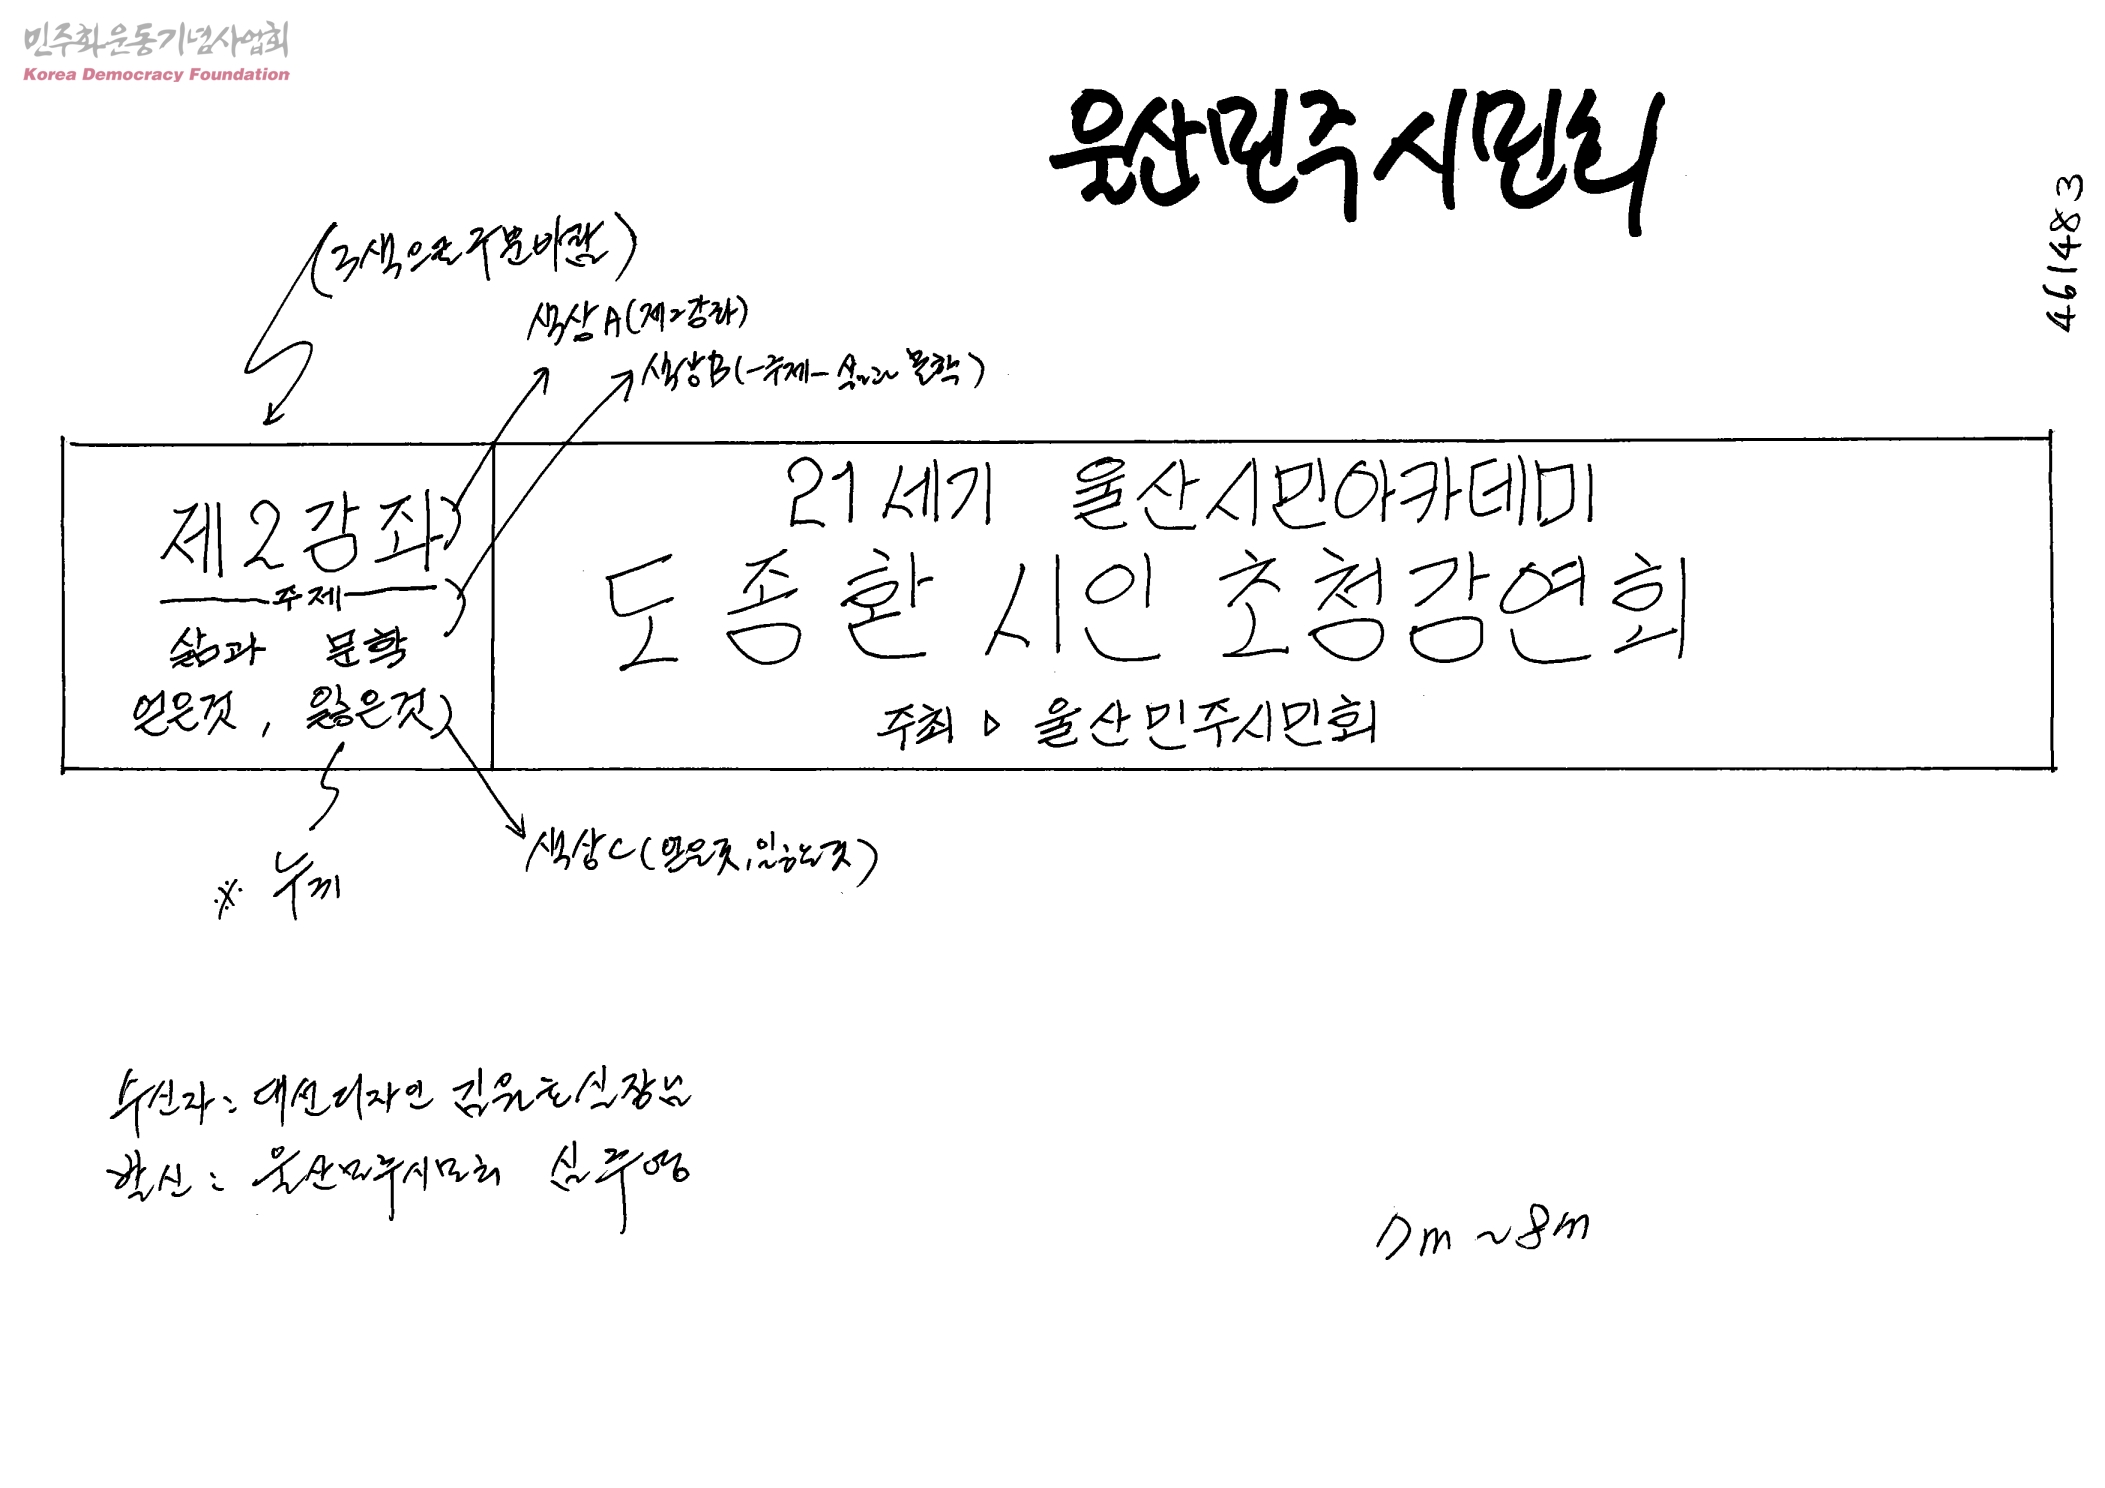 민주화운동기념사업회
Korea Democracy Foundation
울산민주시민회
461483
(3색으로 구분바람)
색상A(제2강좌)
색상B(-주제- 삶과 문학)
제2강좌
주제
삶과 문학
얻은것, 잃은것
21세기 울산시민아카데미
도종환 시인 초청강연회
주최 ▷ 울산민주시민회
색상C(얻은것, 잃은것)
※ 누끼
수신자: 대선디자인 김 실장님
발신: 울산민주시민회 심주영
7m ~ 8m